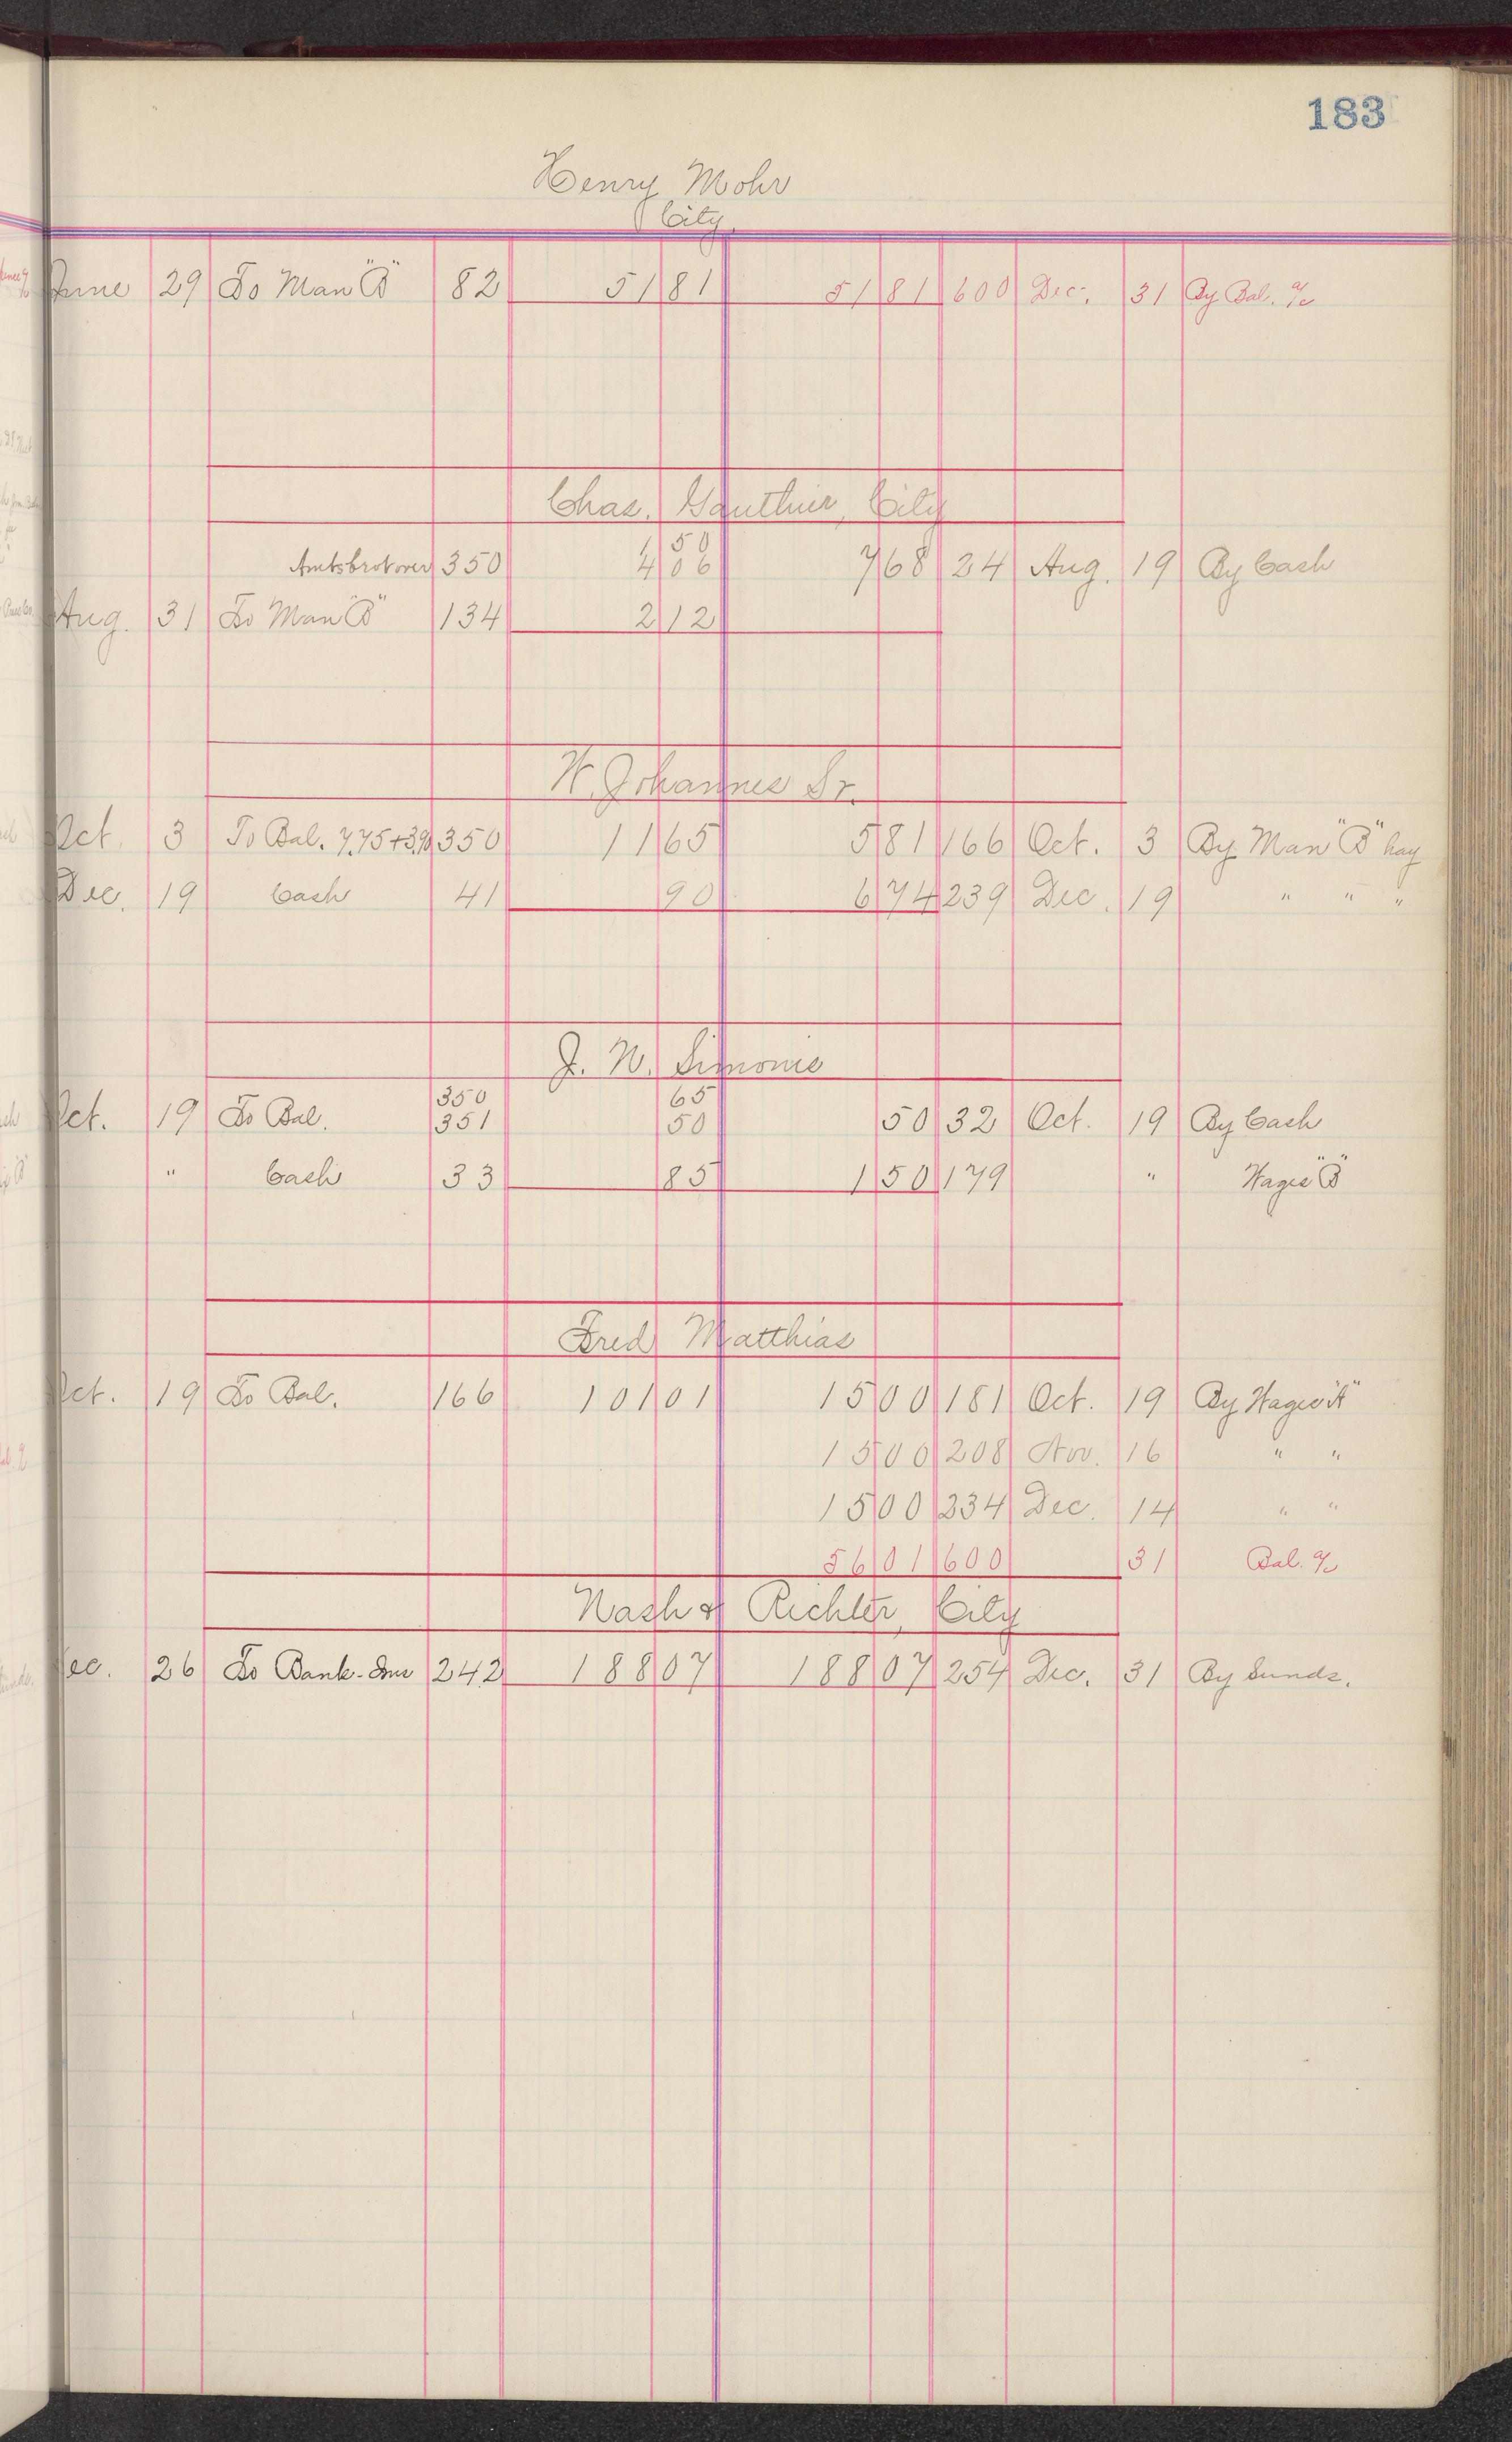 183
Henry Mohr
City
June 29 To Man "B" 82 51 81 51 81 600 Dec. 31 By Bal. a/c
Chas. Gauthier, City
1 50
Amts brot over 350 4 06 7 68 24 Aug. 19 By Cash
Aug. 31 To Man "B" 134 2 12
W. Johannes Sr.
Oct. 3 To Bal. 7.75 + 3.90 350 11 65 5 81 166 Oct. 3 By Man "B" hay
Dec. 19 Cash 41 90 6 74 239 Dec. 19 " " "
J. W. Simonis
350 65
Oct. 19 To Bal. 351 50 50 32 Oct. 19 By Cash
" Cash 33 85 1 50 179 " Wages "B"
Fred Matthias
Oct. 19 To Bal. 166 101 01 15 00 181 Oct. 19 By Wages "A"
15 00 208 Nov. 16 " "
15 00 234 Dec. 14 " "
56 01 600 31 Bal. a/c
Nash & Richter, City
Dec. 26 To Bank-Ins 242 188 07 188 07 254 Dec. 31 By Sunds.